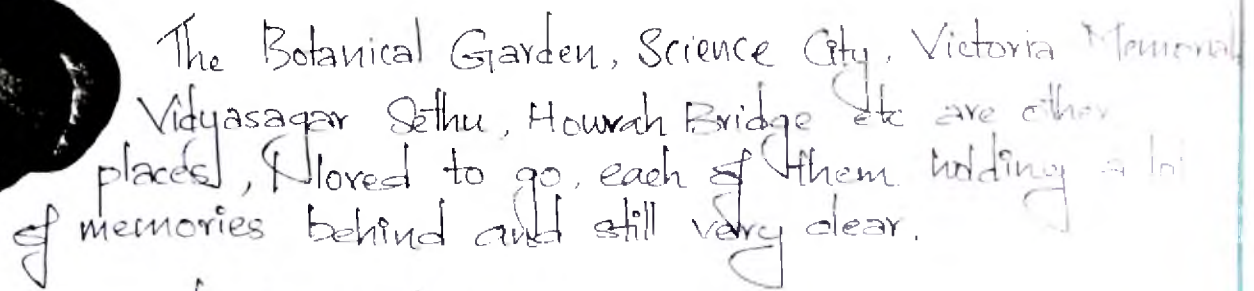 The Botanical Garden, Science City, Victoria Memorial
Vidyasagar Sethu, Howrah Bridge etc are other
places, I loved to go, each of them holding a lot
of memories behind and still very clear.